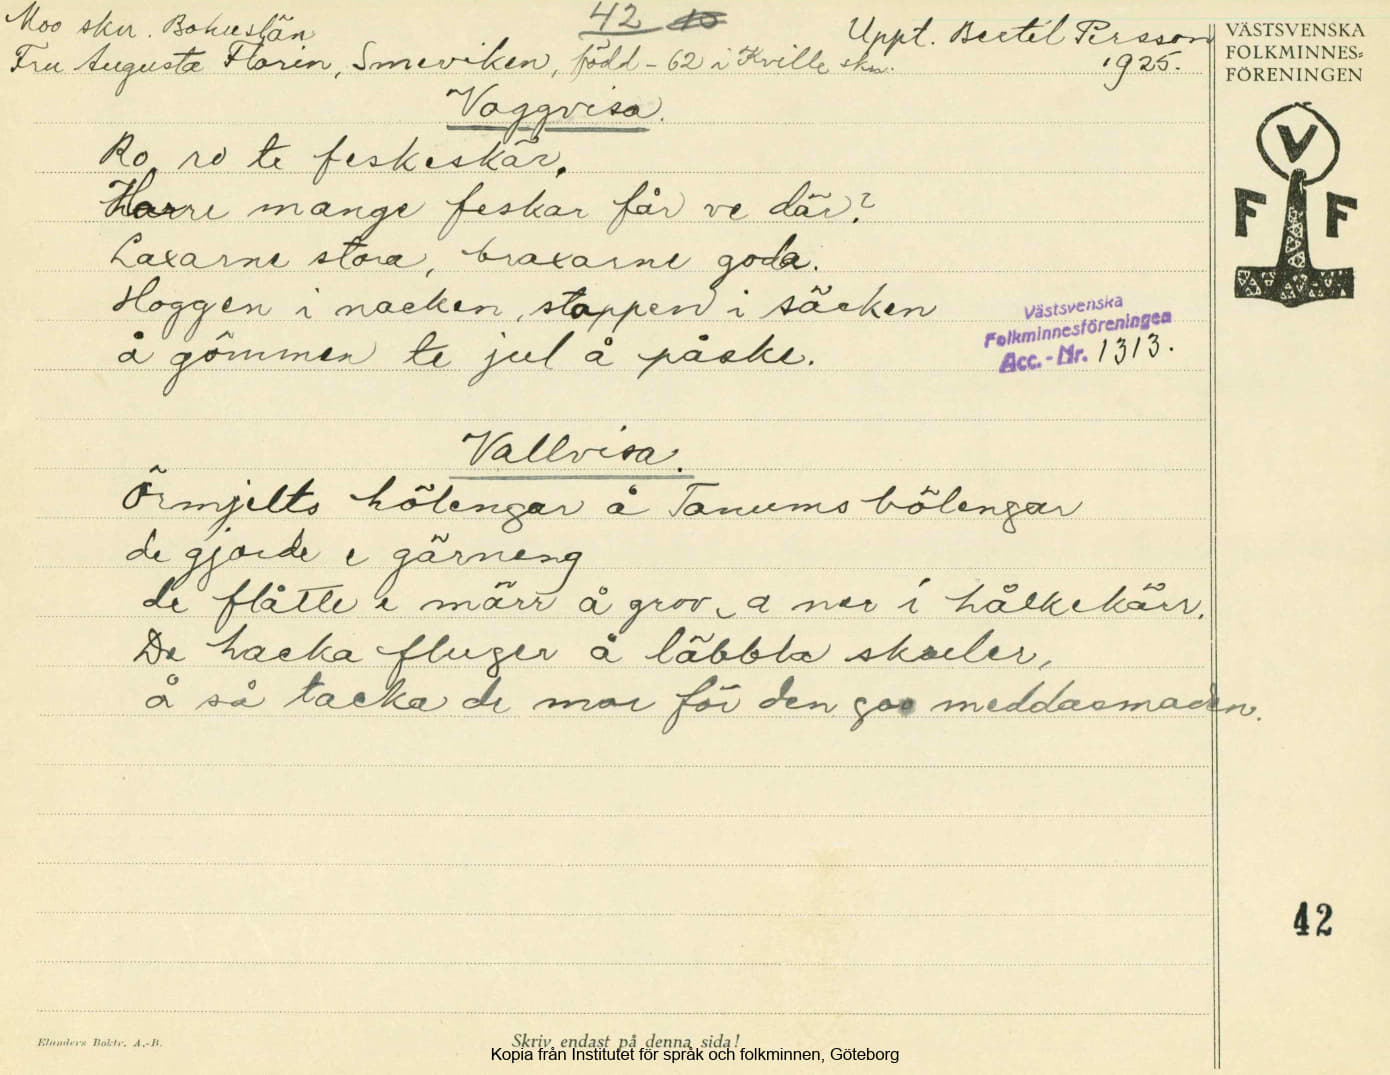 Moo skn. Bohuslän
42
Uppt. Bertil Persson
Fru Augusta Florin, Smeviken, född -62 i Kville skn.
1925.
VÄSTSVENSKA
FOLKMINNES=
FÖRENINGEN
V
F F
Vaggvisa.
Ro, ro te feskeskär,
Harre mange feskar får ve där?
Laxarne stora, braxarne goda.
Hoggen i nacken, stoppen i säcken
å gömmen te jul å påske.
Västsvenska
Folkminnesföreningen
Acc.-Nr. 1313.
Vallvisa.
Örmjelts hölengar å Tanums bölengar
de gjorde e gärneng
de flåtte e märr å grov a ner i hålkekärr.
De hacka fluger å läbbla skreler,
å så tacka de mor för den goo meddasmaden.
42
Elanders Boktr. A.-B.
Skriv endast på denna sida!
Kopia från Institutet för språk och folkminnen, Göteborg